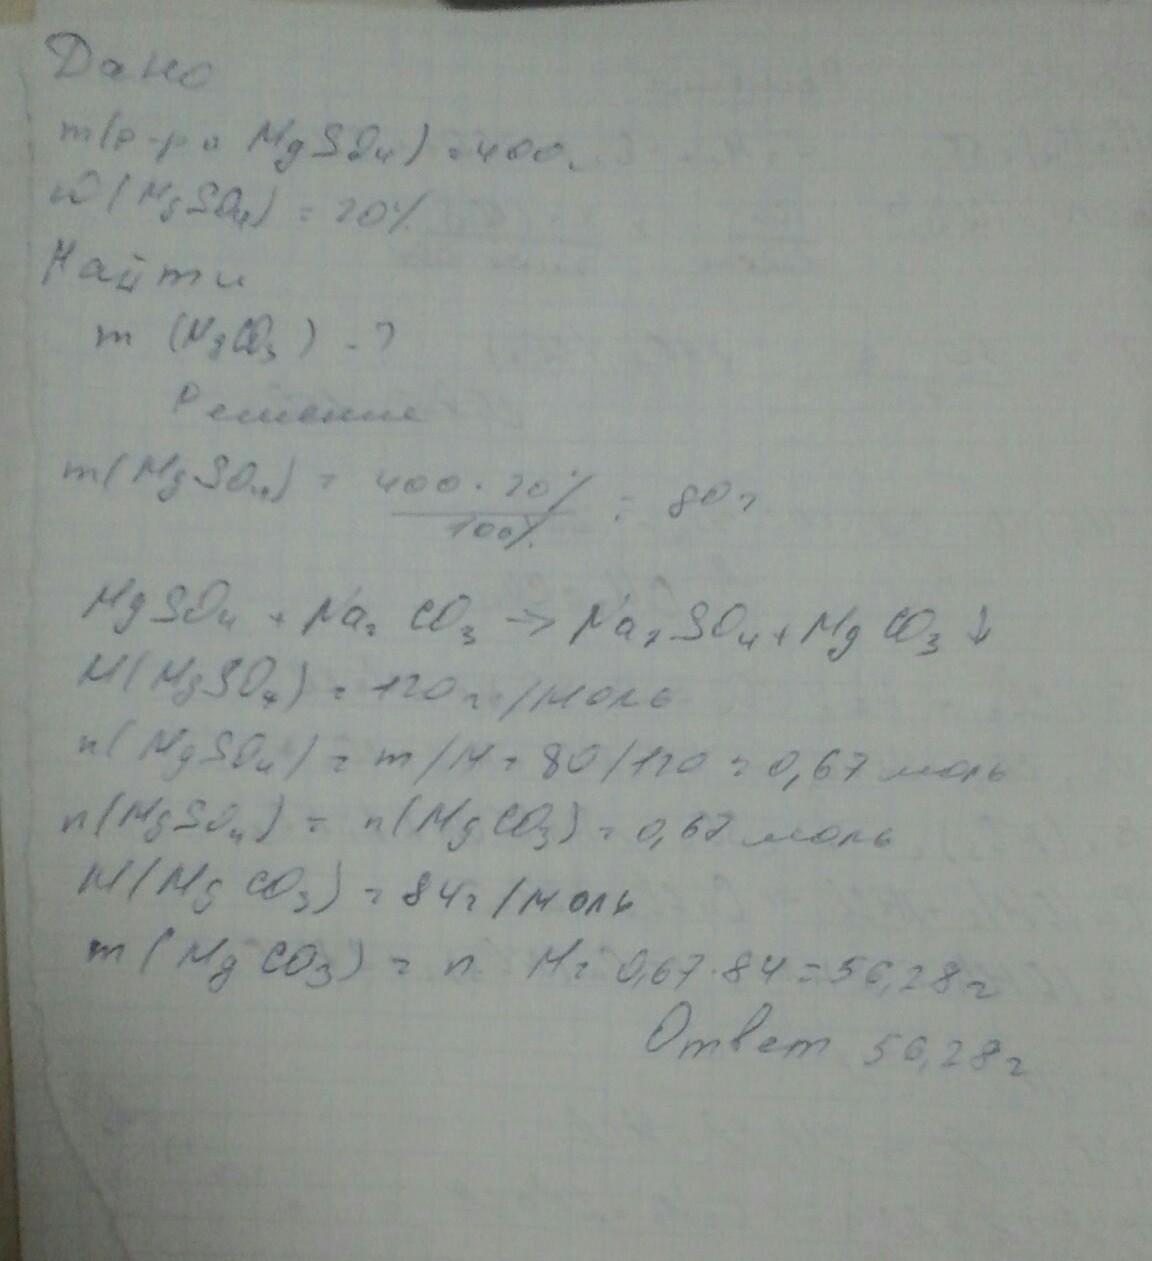 Дано
m(р-ра MgSO₄) = 400г
ω(MgSO₄) = 20%
Найти
m (MgCO₃) - ?
Решение
m(MgSO₄) = 400 · 20% / 100% = 80г
MgSO₄ + Na₂CO₃ → Na₂SO₄ + MgCO₃ ↓
M(MgSO₄) = 120г/моль
n(MgSO₄) = m/M = 80/120 = 0,67 моль
n(MgSO₄) = n(MgCO₃) = 0,67 моль
M(MgCO₃) = 84г/моль
m(MgCO₃) = n M = 0,67·84 = 56,28г
Ответ 56,28г